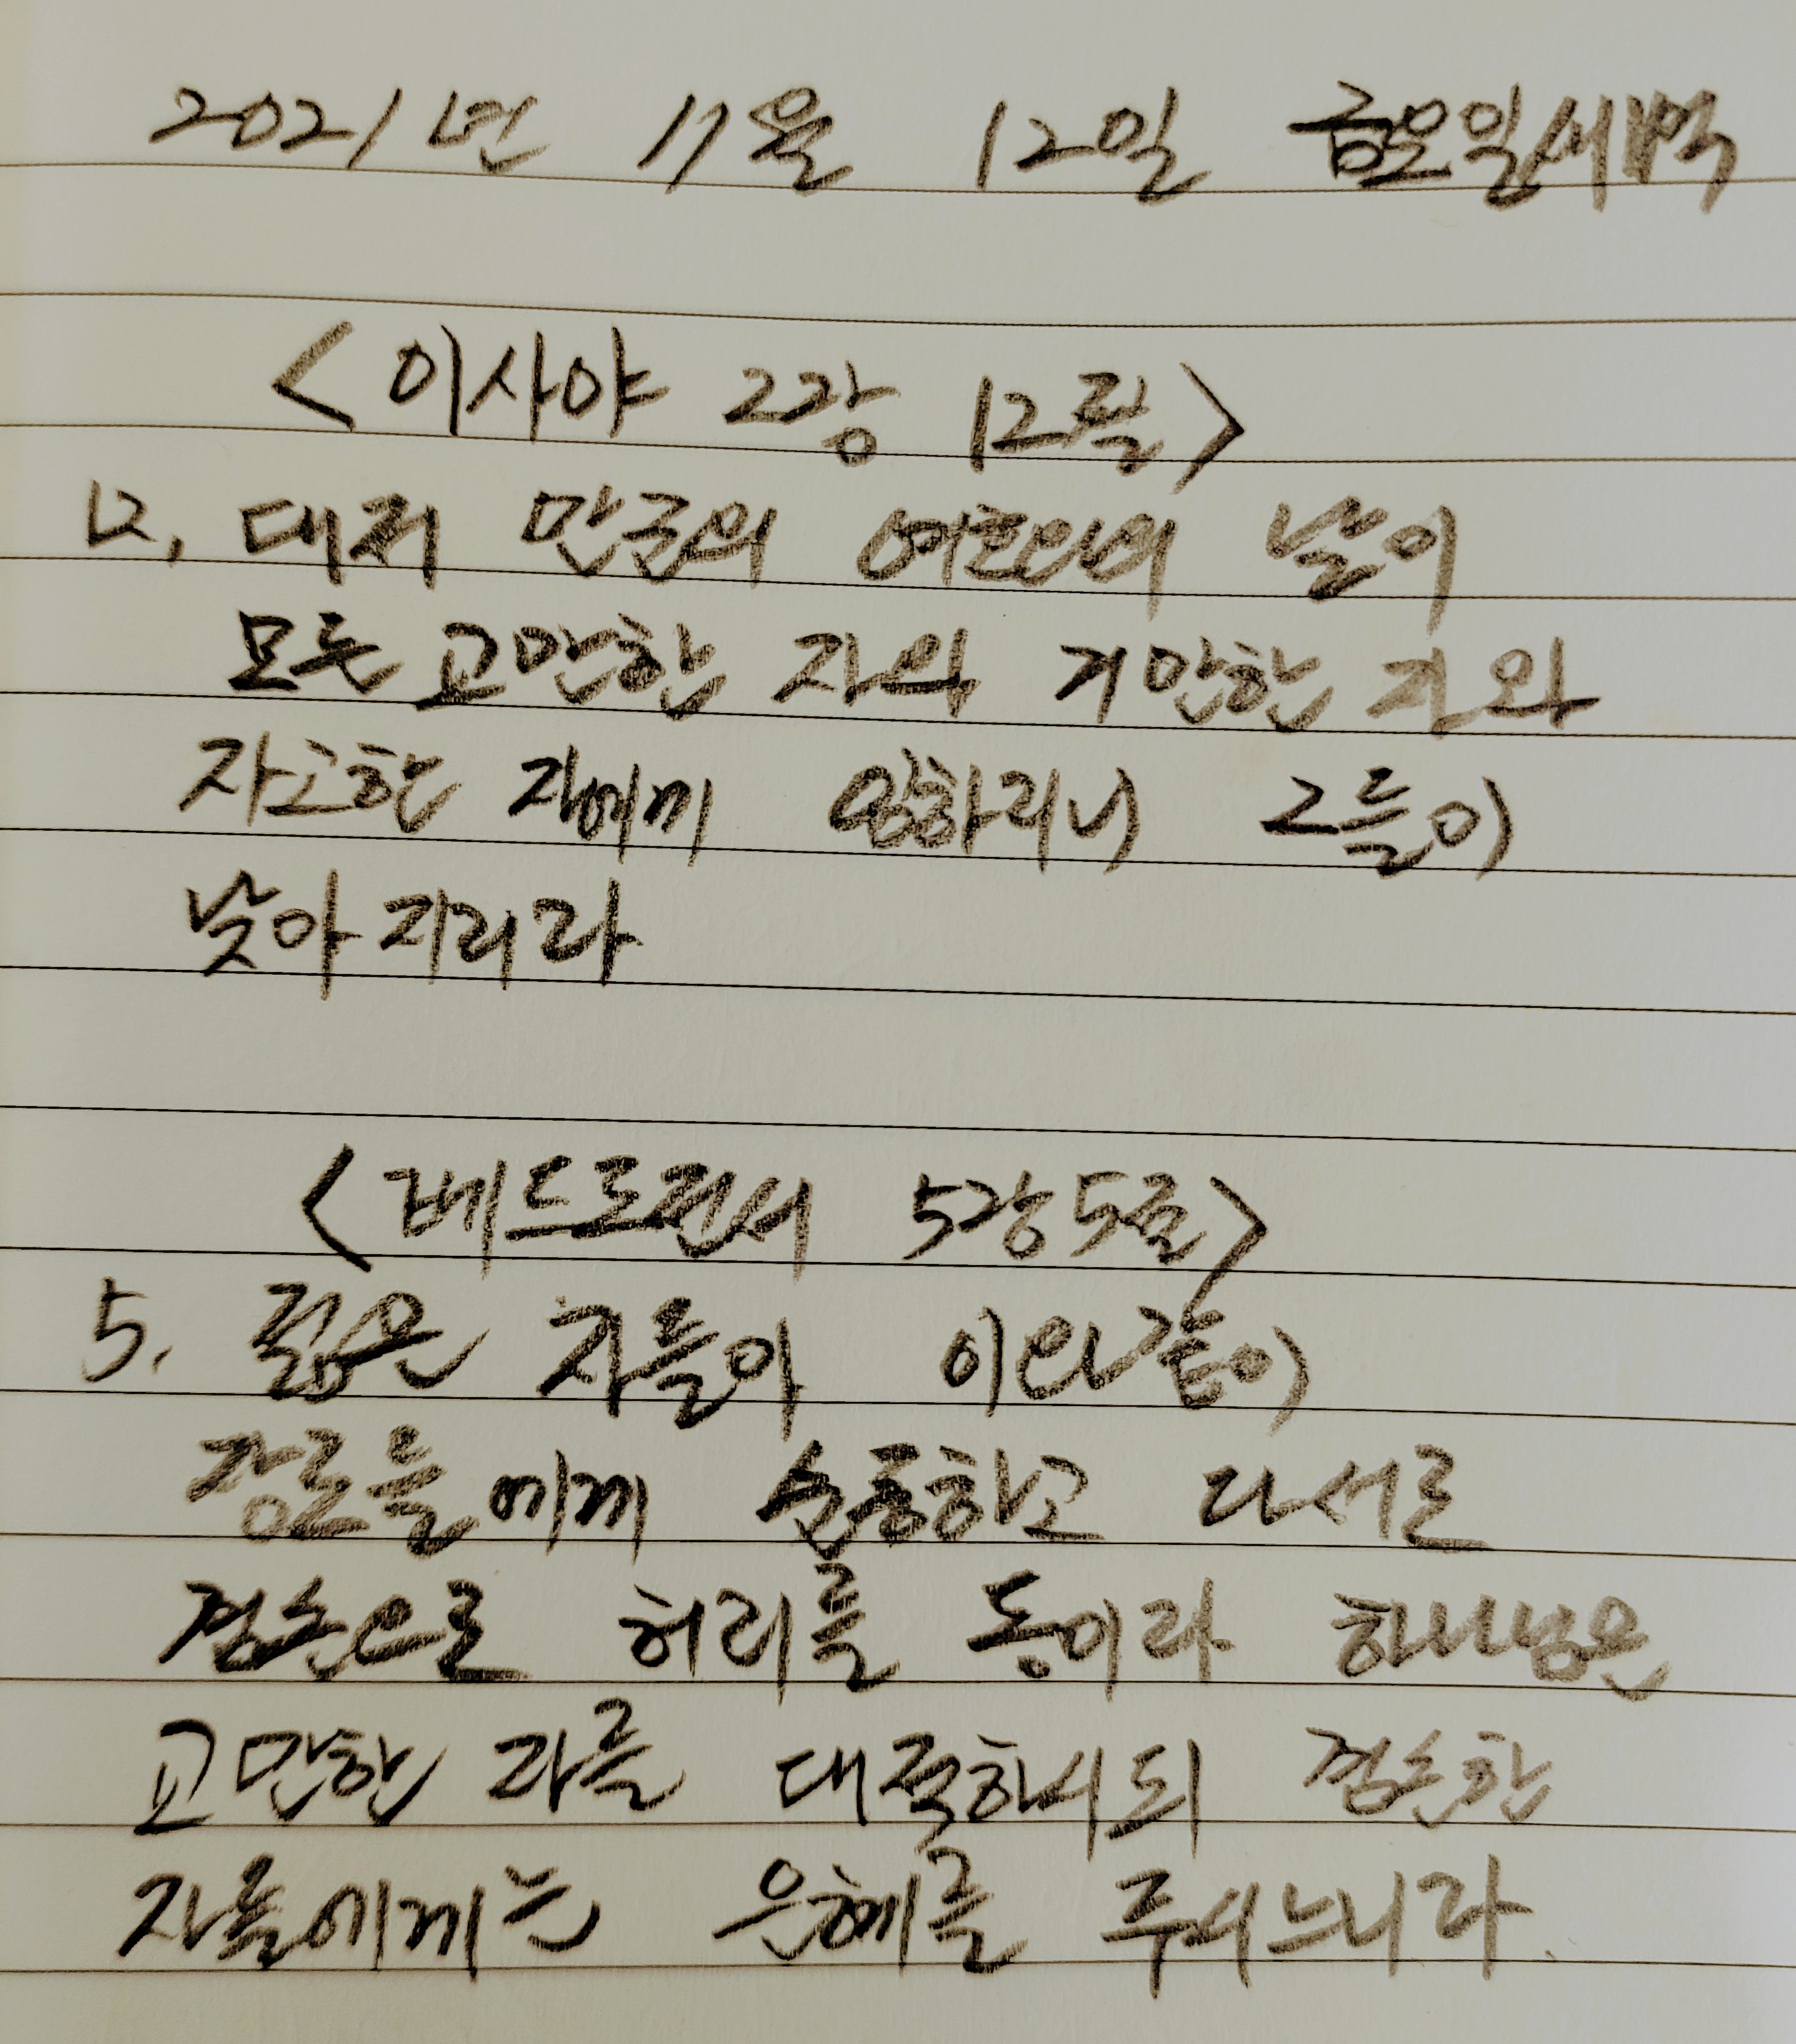 2021년 11월 12일 금요일새벽
<이사야 2장 12절>
12. 대저 만군의 여호와의 날이
모든 교만한 자와 거만한 자와
자고한 자에게 임하리니 그들이
낮아지리라
<베드로전서 5장5절>
5. 젊은 자들아 이와같이
장로들에게 순종하고 다서로
겸손으로 허리를 동이라 하나님은
교만한 자를 대적하시되 겸손한
자들에게는 은혜를 주시느니라.